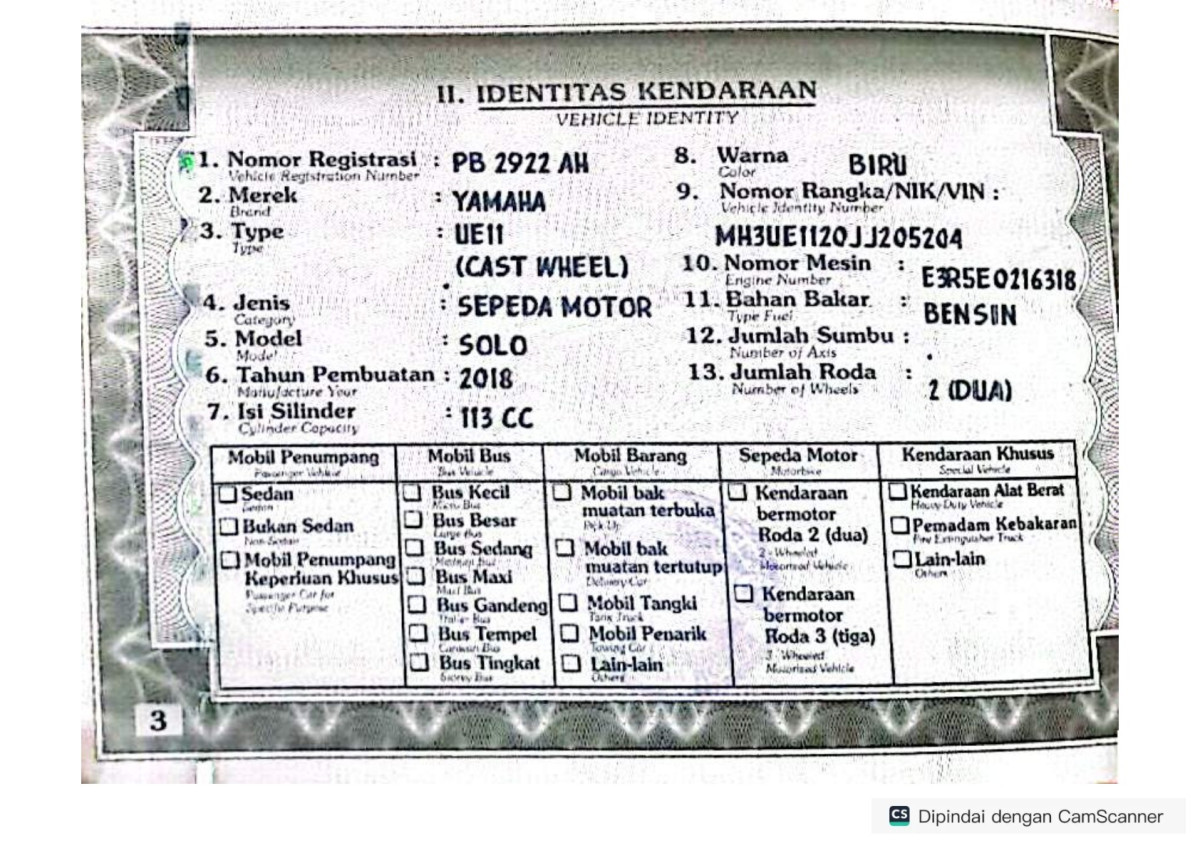 II. IDENTITAS KENDARAAN
VEHICLE IDENTITY
1. Nomor Registrasi : PB 2922 AH
Vehicle Registration Number
2. Merek : YAMAHA
Brand
3. Type : UE11
Type
(CAST WHEEL)
4. Jenis : SEPEDA MOTOR
Category
5. Model : SOLO
Model
6. Tahun Pembuatan : 2018
Manufacture Year
7. Isi Silinder : 113 CC
Cylinder Capacity
8. Warna BIRU
Color
9. Nomor Rangka/NIK/VIN :
Vehicle Identity Number
MH3UE1120JJ205204
10. Nomor Mesin : E3R5E0216318
Engine Number
11. Bahan Bakar : BENSIN
Type Fuel
12. Jumlah Sumbu :
Number of Axis
13. Jumlah Roda : 2 (DUA)
Number of Wheels
Mobil Penumpang
Passenger Vehicle
Sedan
Sedan
Bukan Sedan
Non Sedan
Mobil Penumpang
Keperluan Khusus
Passenger Car for
Specific Purpose
Mobil Bus
Bus Vehicle
Bus Kecil
Micro Bus
Bus Besar
Large Bus
Bus Sedang
Medium Bus
Bus Maxi
Maxi Bus
Bus Gandeng
Trailer Bus
Bus Tempel
Caravan Bus
Bus Tingkat
Storey Bus
Mobil Barang
Cargo Vehicle
Mobil bak
muatan terbuka
Pick Up
Mobil bak
muatan tertutup
Delivery Car
Mobil Tangki
Tank Truck
Mobil Penarik
Towing Car
Lain-lain
Others
Sepeda Motor
Motorbike
Kendaraan
bermotor
Roda 2 (dua)
2 - Wheeled
Motorised Vehicle
Kendaraan
bermotor
Roda 3 (tiga)
3 - Wheeled
Motorised Vehicle
Kendaraan Khusus
Special Vehicle
Kendaraan Alat Berat
Heavy Duty Vehicle
Pemadam Kebakaran
Fire Extinguisher Truck
Lain-lain
Others
3
CS Dipindai dengan CamScanner